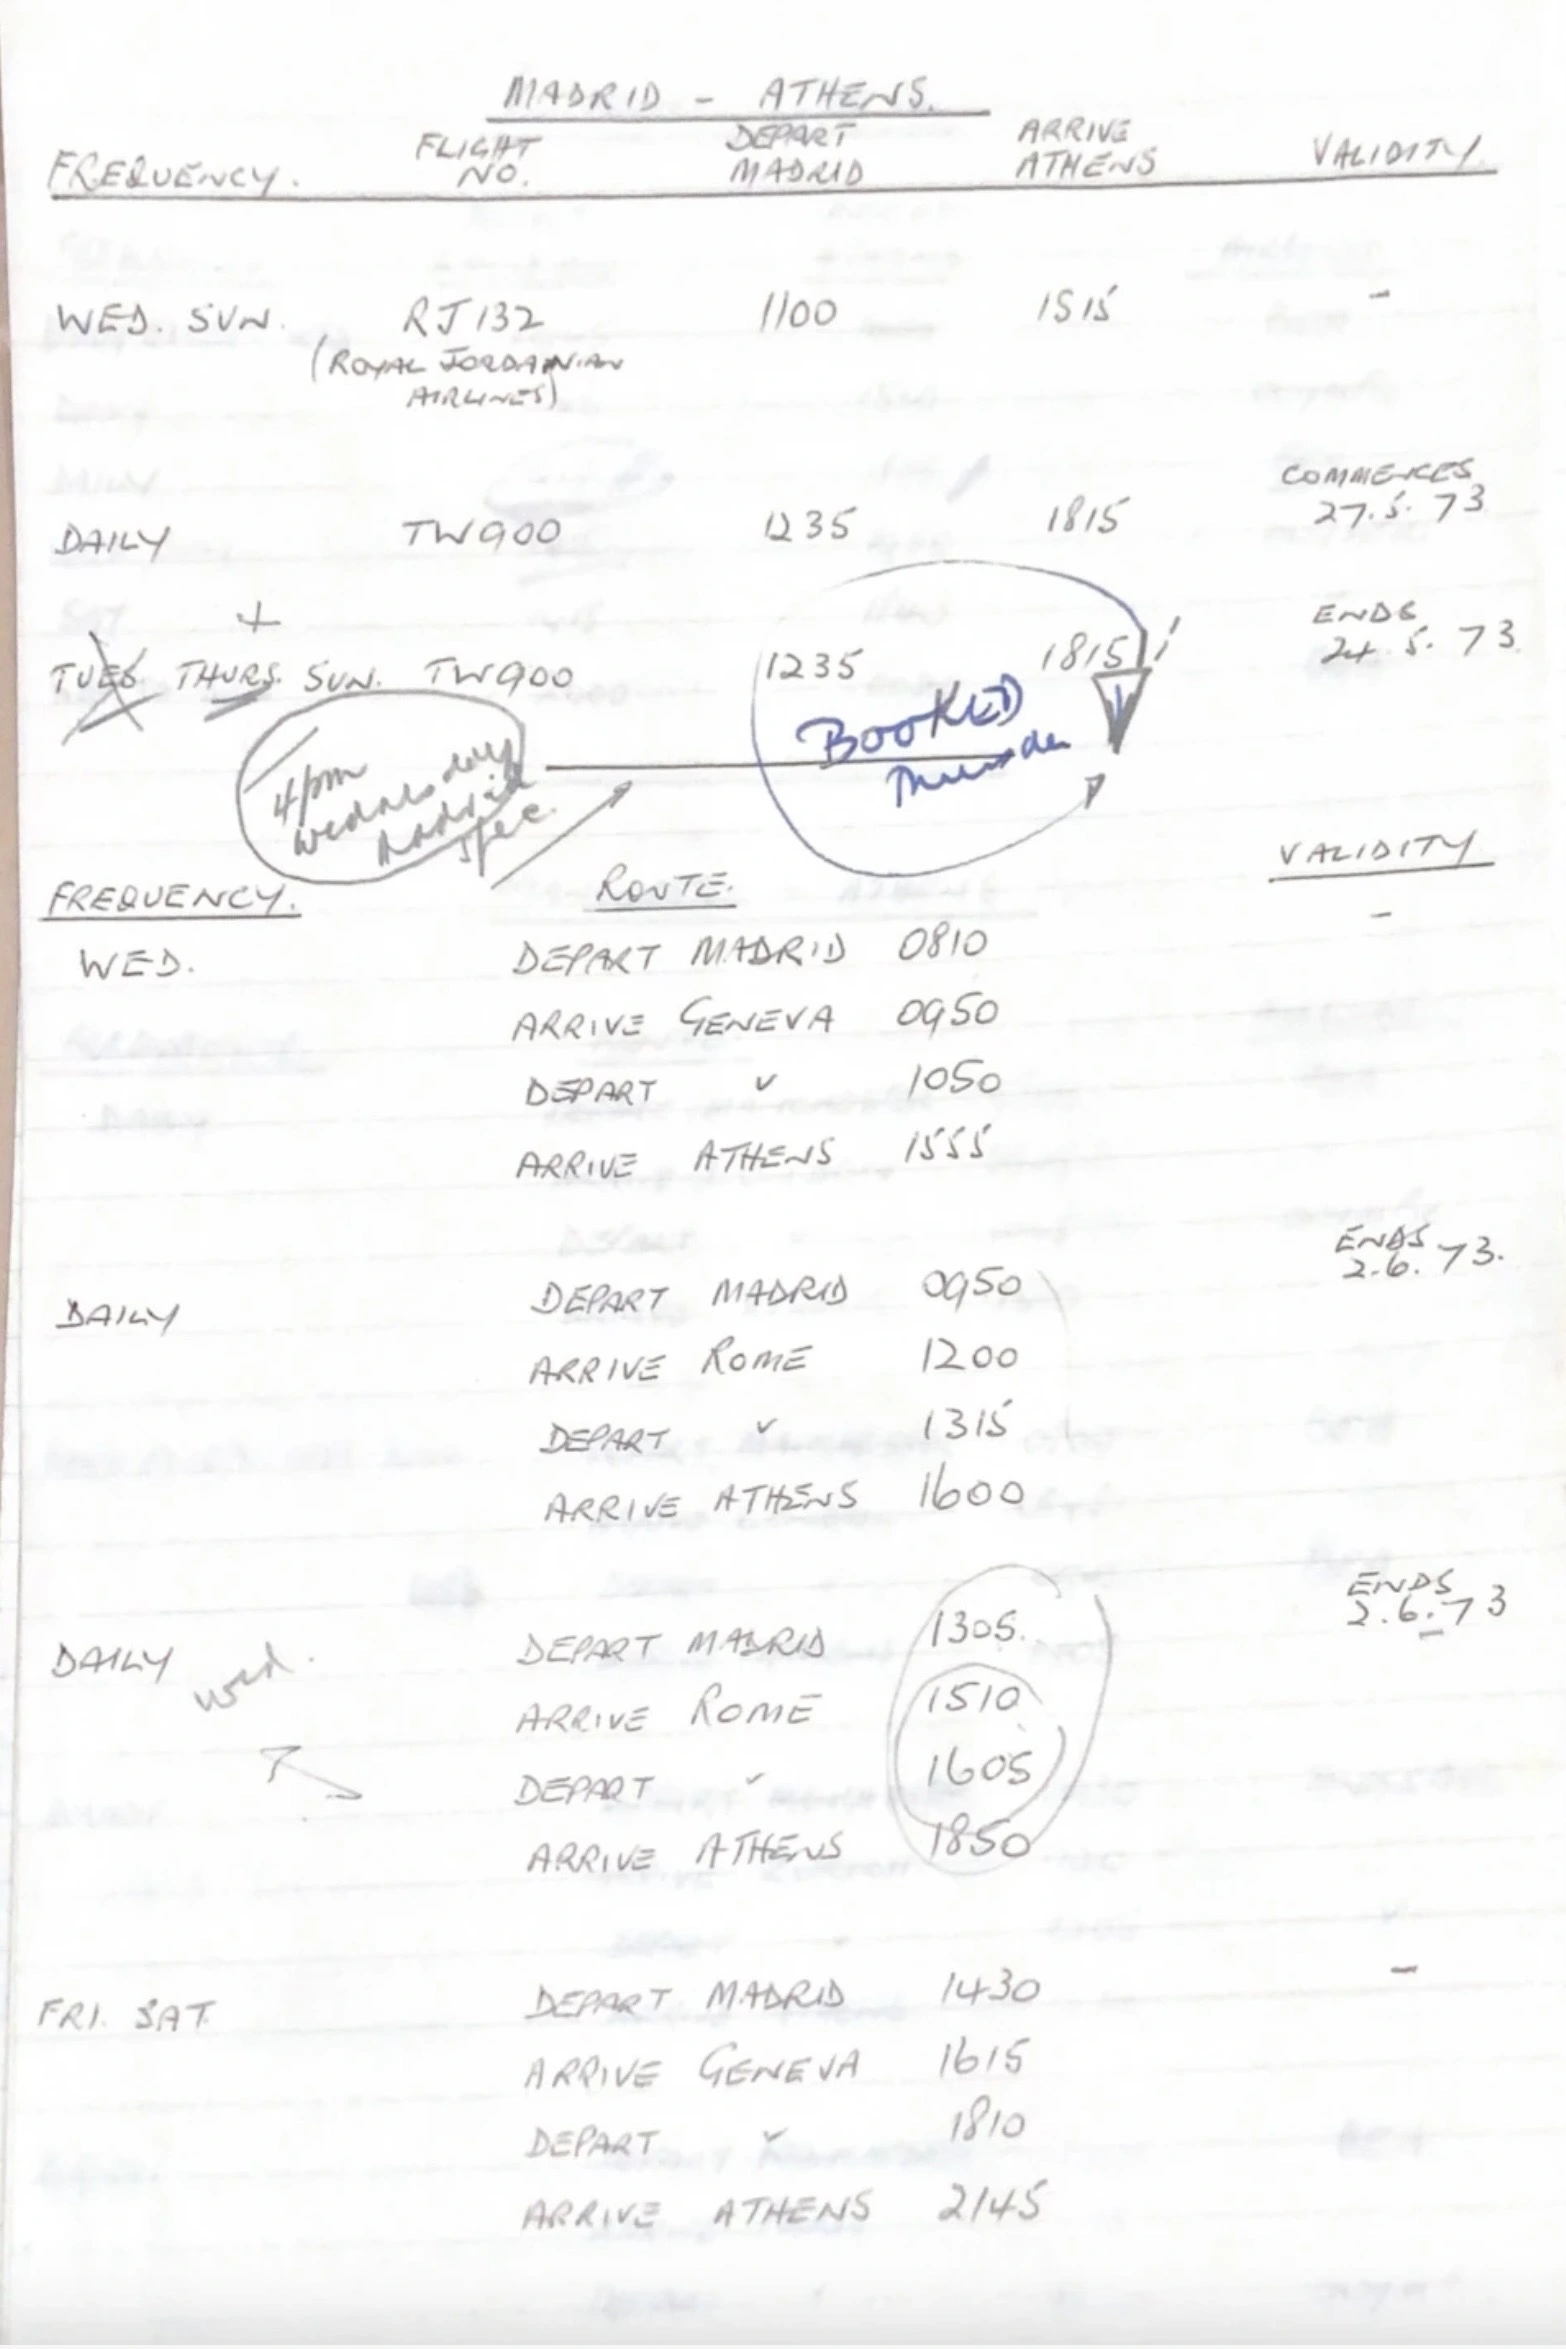 MADRID - ATHENS.
FREQUENCY. FLIGHT NO. DEPART MADRID ARRIVE ATHENS VALIDITY.
WED. SUN. RJ132 1100 1515 -
(ROYAL JORDANIAN
AIRLINES)
DAILY TW900 1235 1815 COMMENCES 27.5.73
+
TUES THURS. SUN. TW900 1235 1815 ENDS 24.5.73
BOOKED
4pm
Wednesday
Madrid
FREQUENCY. ROUTE. VALIDITY
WED. DEPART MADRID 0810 -
ARRIVE GENEVA 0950
DEPART " 1050
ARRIVE ATHENS 1555
DAILY DEPART MADRID 0950 ENDS 2.6.73.
ARRIVE ROME 1200
DEPART " 1315
ARRIVE ATHENS 1600
DAILY wed. DEPART MADRID 1305. ENDS 2.6.73
ARRIVE ROME 1510
DEPART " 1605
ARRIVE ATHENS 1850
FRI. SAT. DEPART MADRID 1430 -
ARRIVE GENEVA 1615
DEPART " 1810
ARRIVE ATHENS 2145